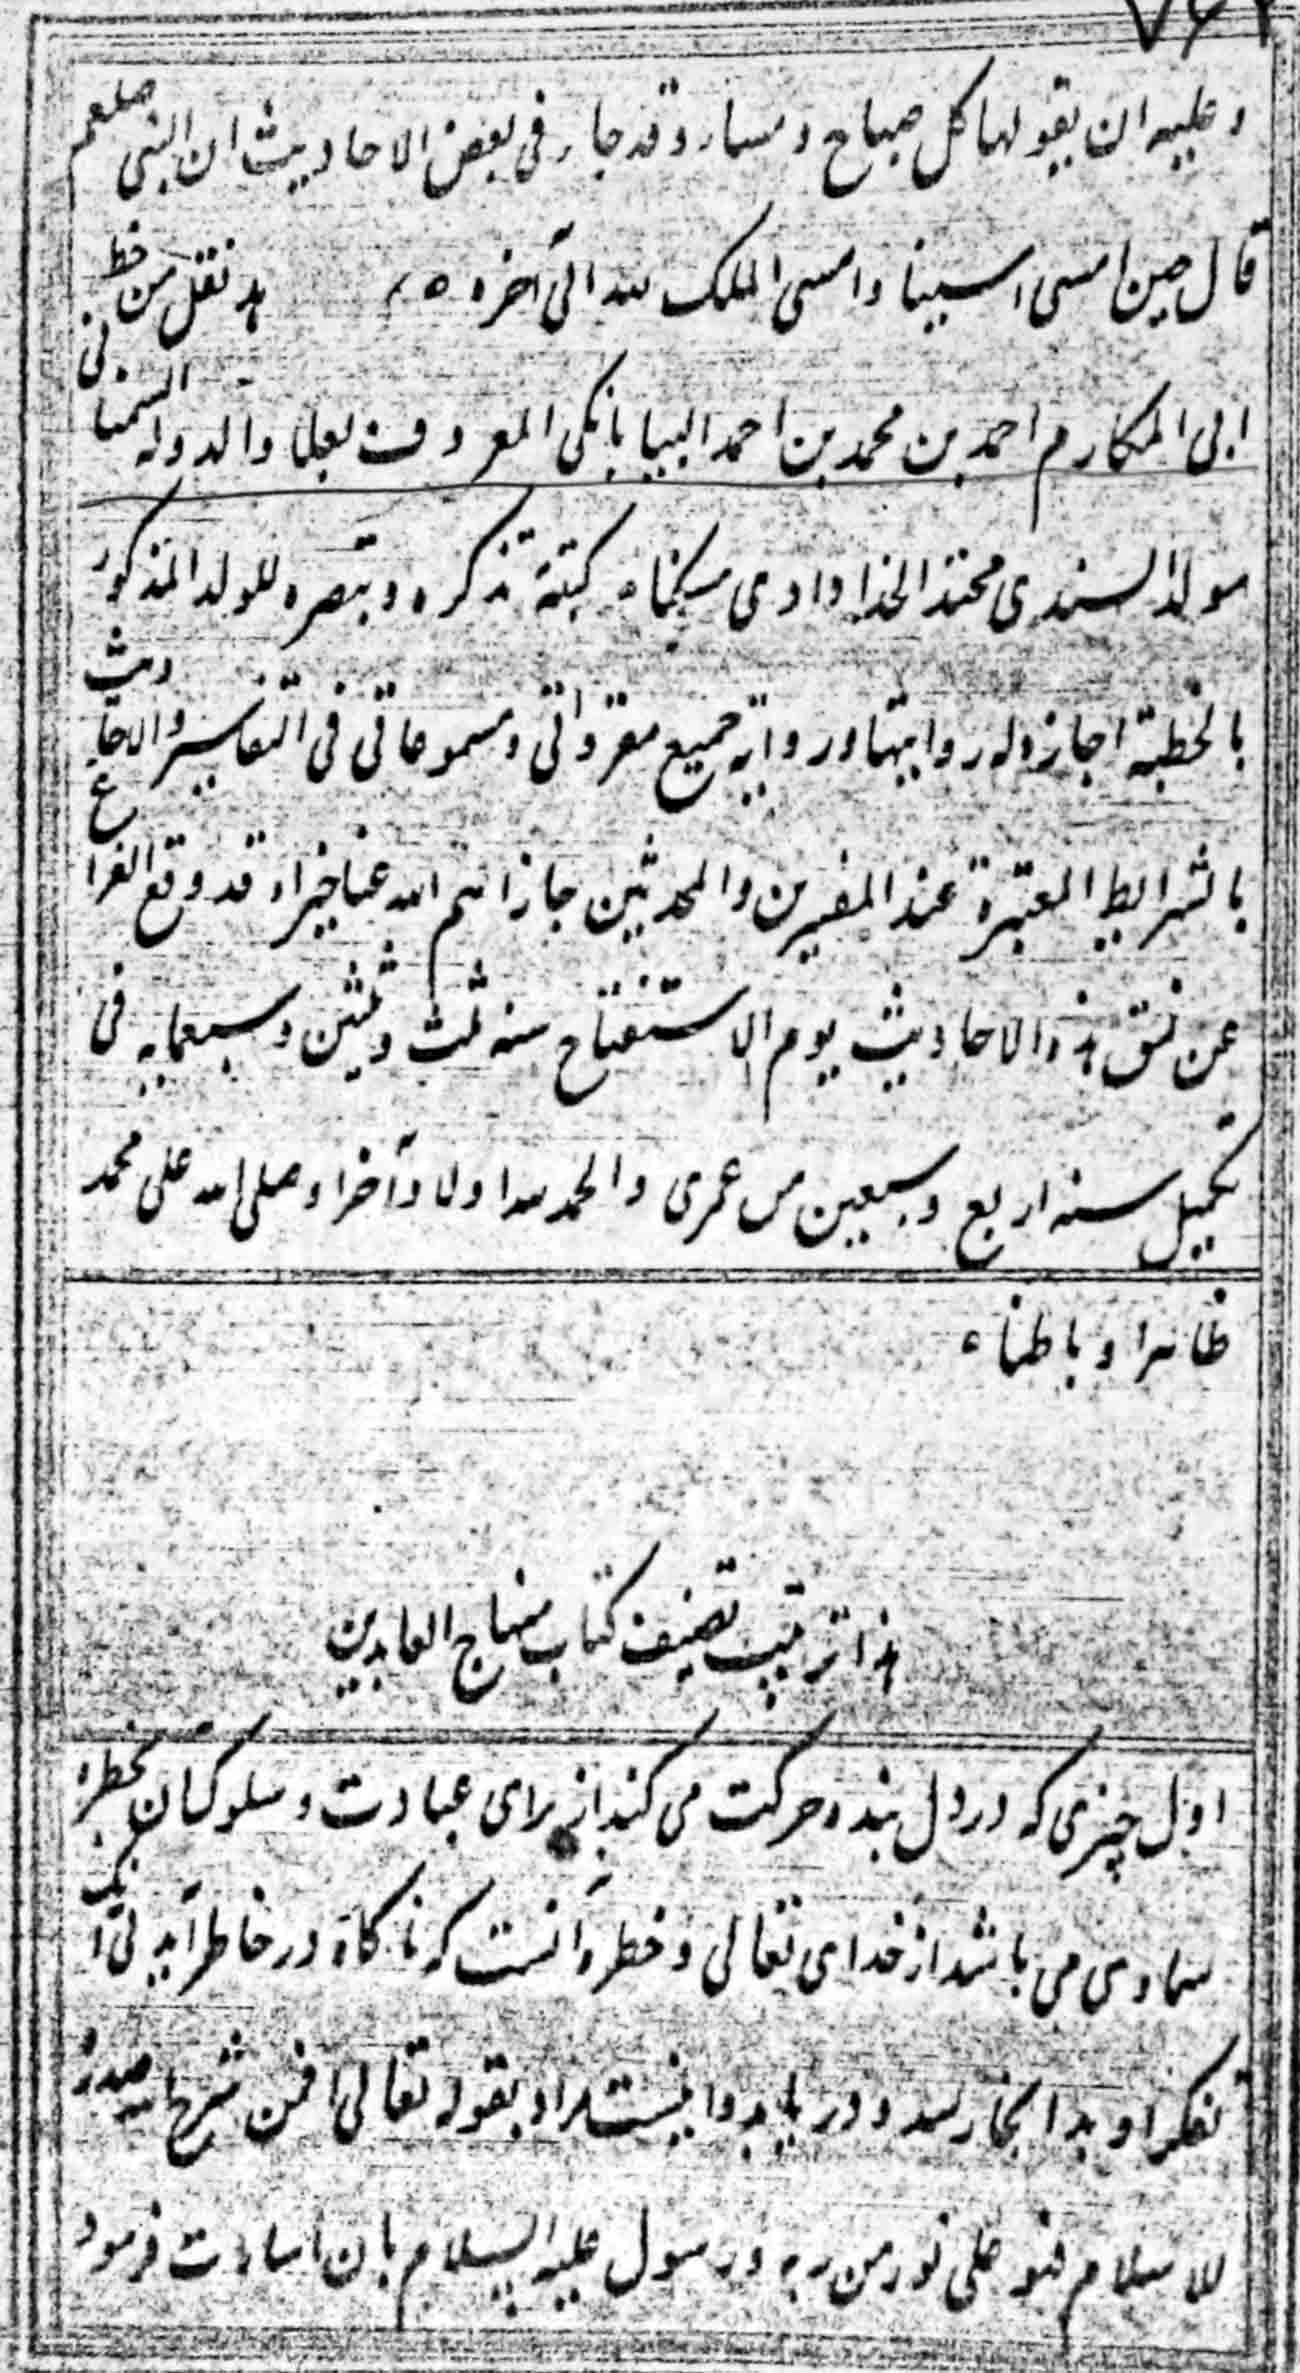 ۷۶۲
و علیه ان یقولها کل صباح و مساء وقد جاء فی بعض الاحادیث ان النبی صلعم
قال حین امسی امسینا وامسی الملک لله الی آخره هذ نقل من خط
ابی المکارم احمد بن محمد بن احمد البیابانکی المعروف بعلاء والدوله السمنانی
مولدا السندی محتدا الخدادادی کتبه تذکره و تبصره للولد المذکور
بالخطبة اجازه له روایتها وروایة جمیع مقرواتی ومسموعاتی فی التفاسیر والاحادیث
بالشرایط المعتبرة عند المفسرین والمحدثین جازاهم الله عنا خیرا و قد وقع الفراغ
عن نسق هذه الاحادیث یوم الاستفتاح سنه ثلث وثلثین وسبعمایه فی
تکمیل سنه اربع وسبعین من عمری والحمد لله اولا وآخرا وصلی الله علی محمد
ظاهرا و باطنا
هذا ترتیب تصنیف کتاب منهاج العابدین
اول چیزی که در دل بنده حرکت می کند از برای عبادت و سلوک آن خطره
سماوی می باشد از خدای تعالی و خطره آنست که ناگاه در خاطر آید بی آنک
تفکر او بدانجا رسد و دریابد و اینست مراد بقوله تعالی افمن شرح الله صدره
للاسلام فهو علی نور من ربه و رسول علیه السلام بان اشارت فرمود